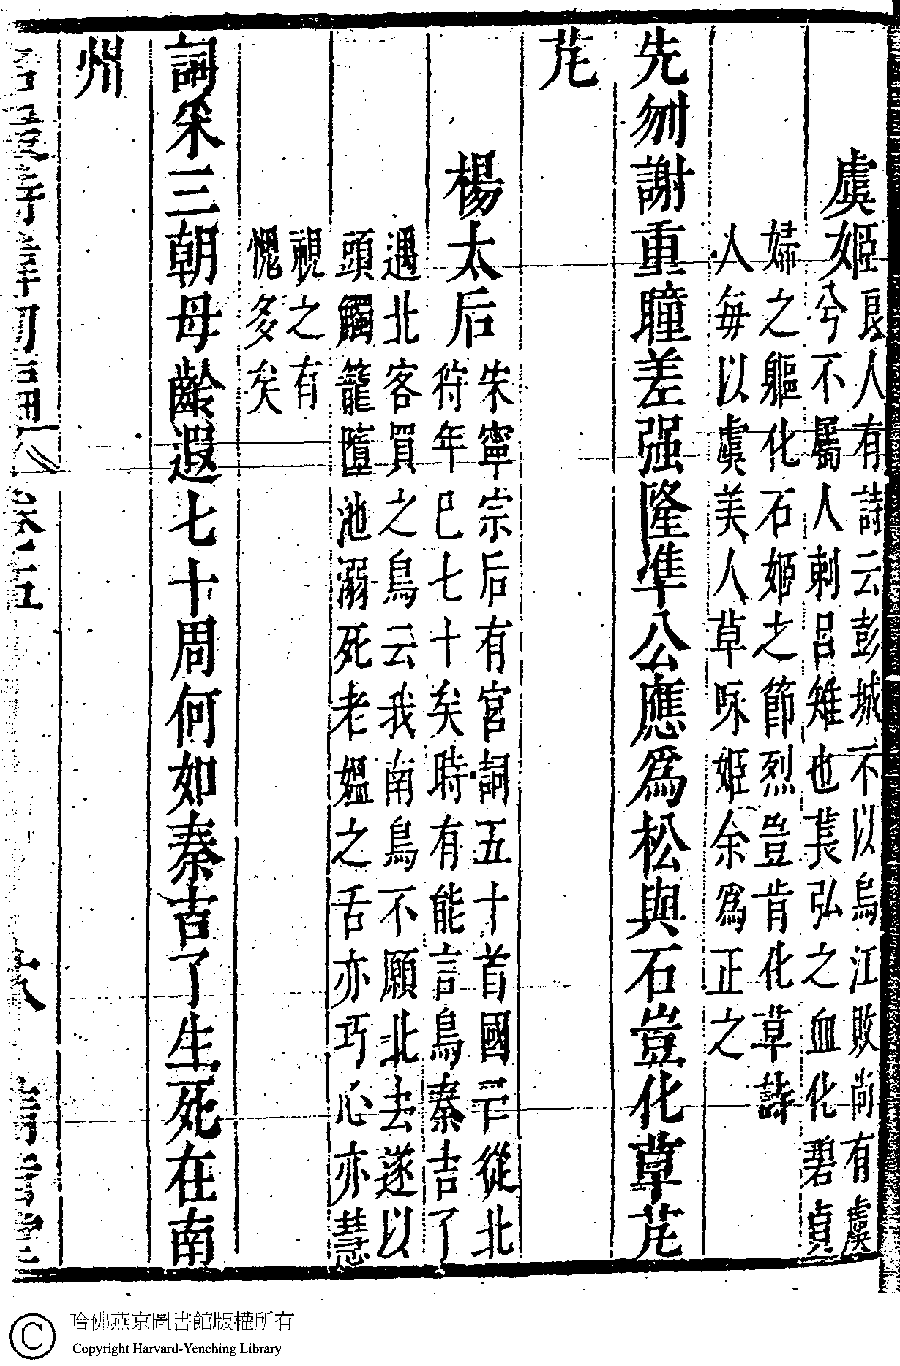 虞姬
良人有詩云彭城不以烏江敗尚有虞
兮不屬人刺呂雉也萇弘之血化碧貞
婦之軀化石姬之節烈豈肯化草詩
人每以虞美人草咏姬余為正之
先刎謝重瞳差强隆準公應爲松與石豈化草芘
芘
楊太后
朱寧宗后有宮詞五十首國亡從北
狩年已七十矣時有能言鳥秦吉了
遇北客買之鳥云我南鳥不願北去遂以
頭觸籠墮池溺死老媼之舌亦巧心亦慧
視之有
愧多矣
詞采三朝母齡遐七十周何如秦吉了生死在南
州
卷五
哈佛燕京圖書館版權所有
Copyright Harvard-Yenching Library